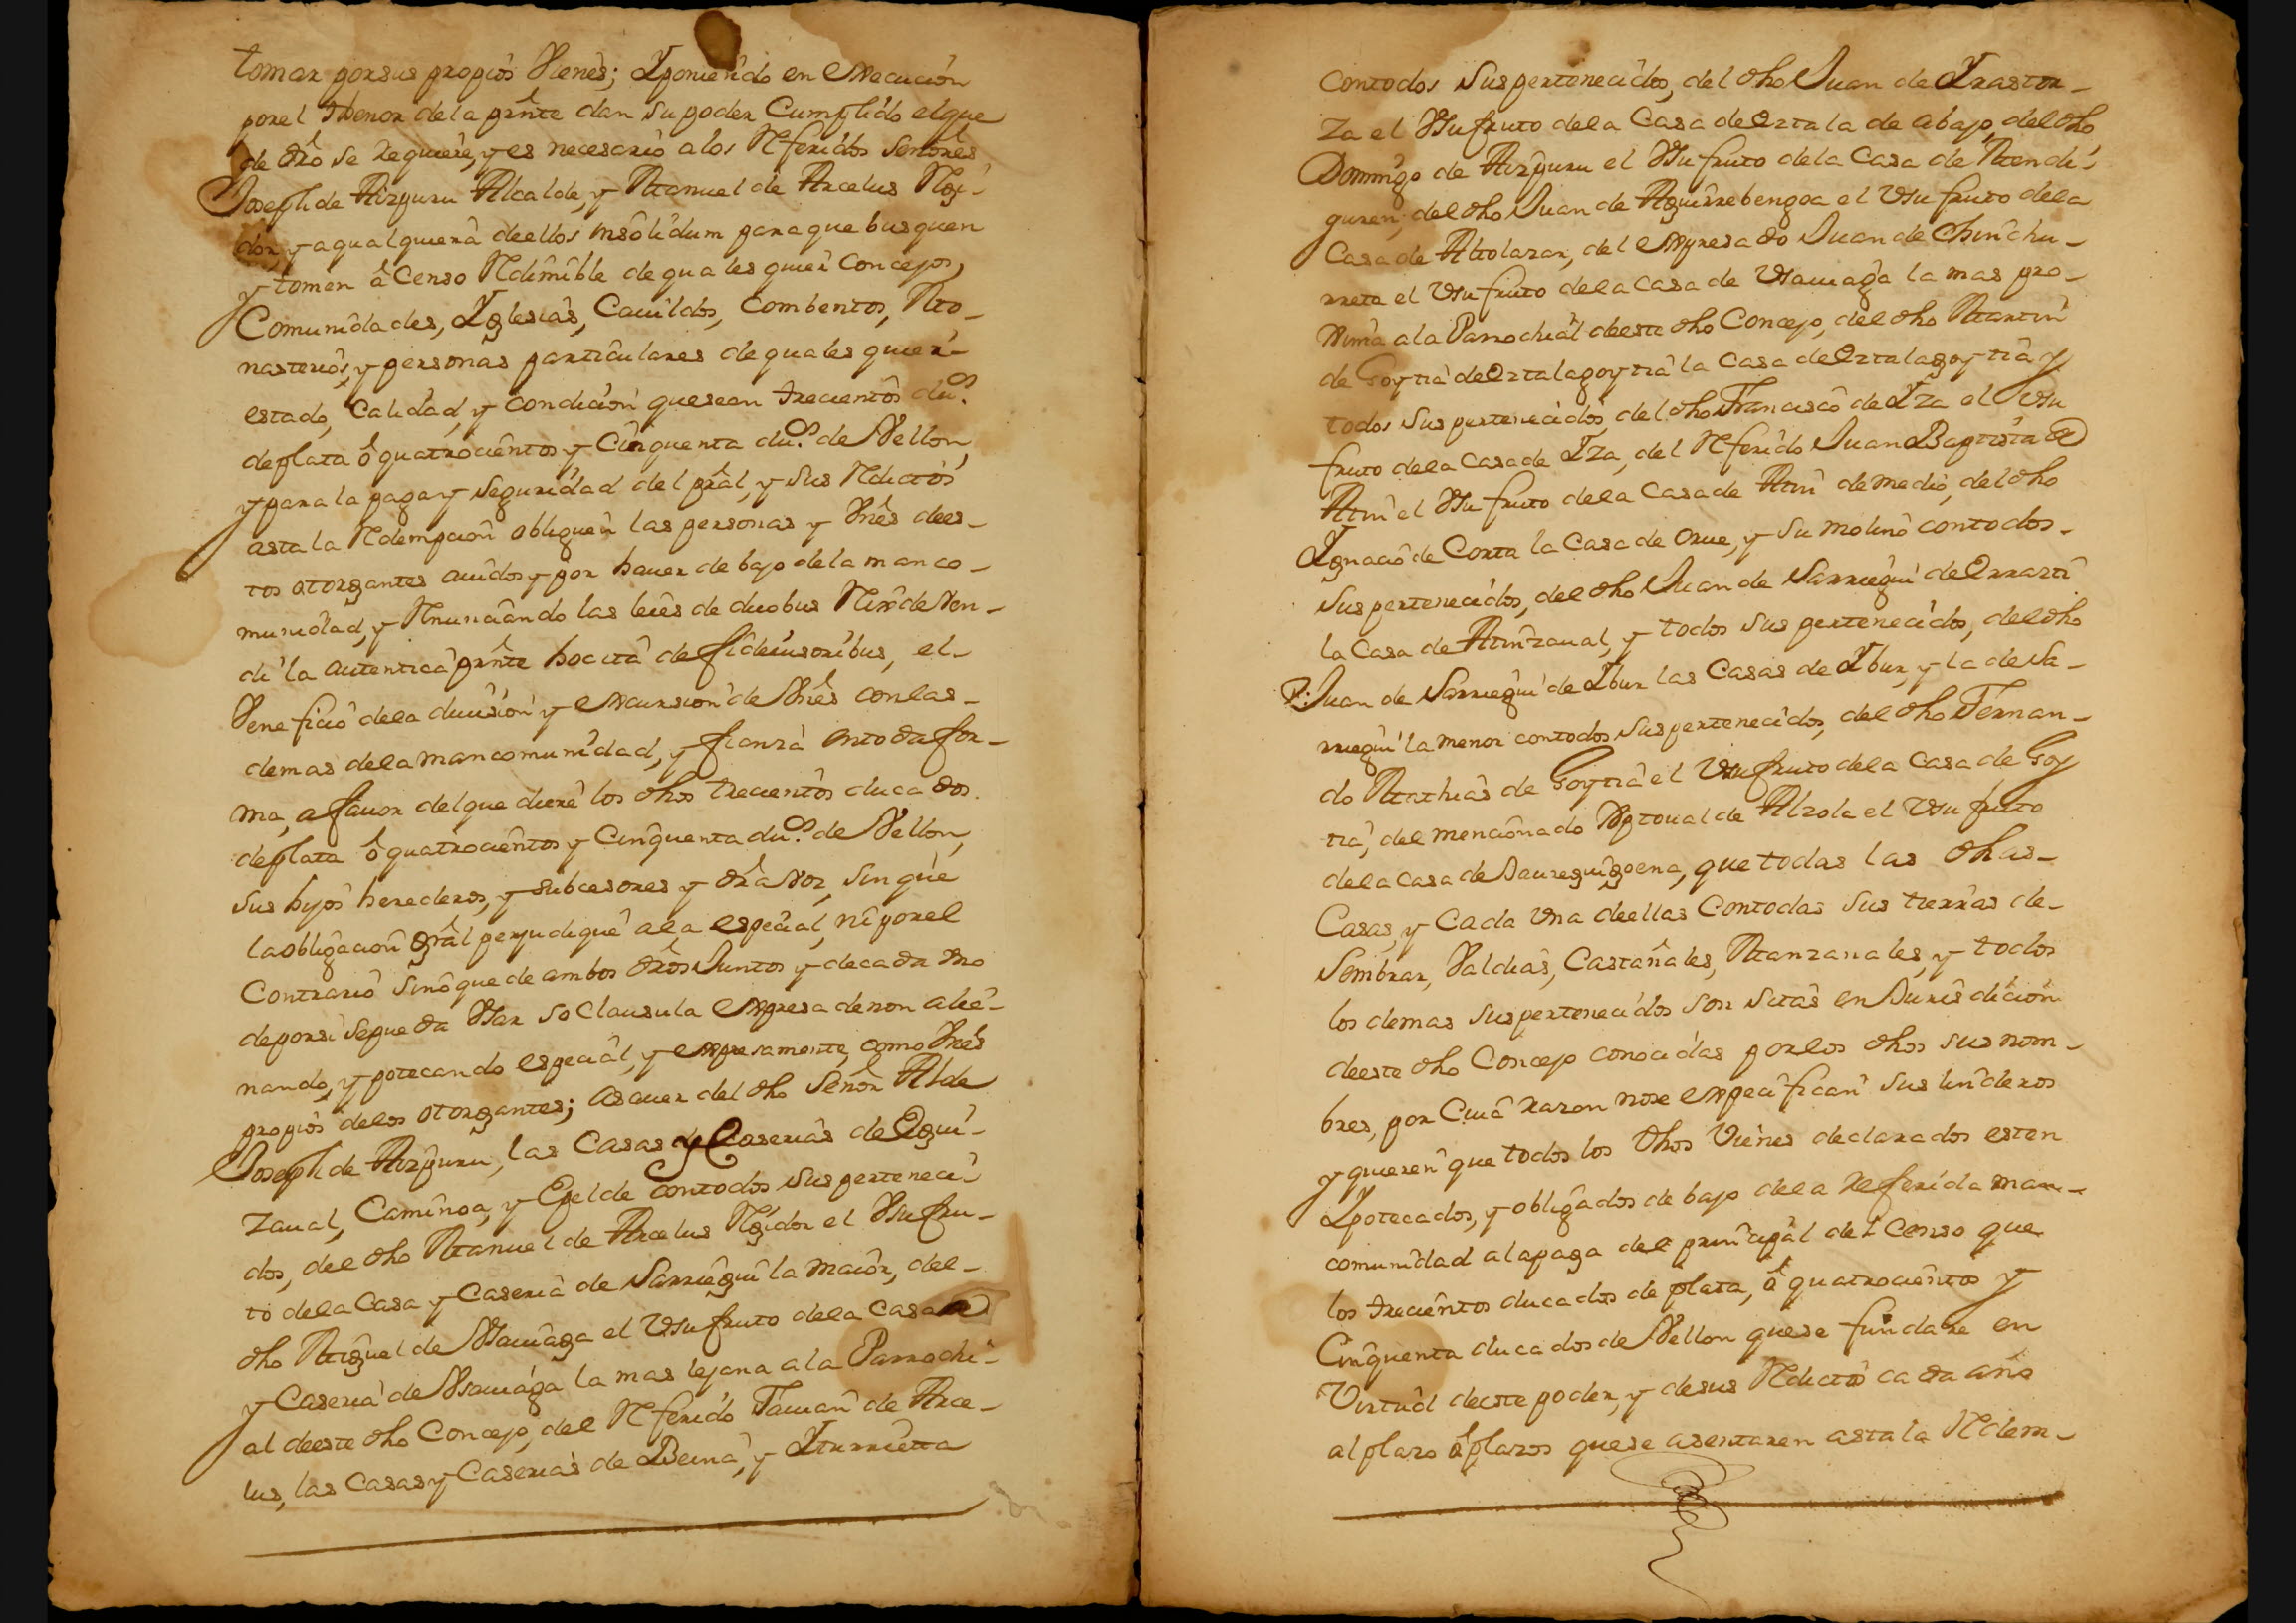 tomar por sus propios Vienes; Y poniendo en execucion
por el thenor de la prnte dan su poder Cumplido el que
de dro se requiere, y es necesario a los Referidos Señores
Joseph de Aizpuru Alcalde, y Manuel de Arcelus Regi-
dor, y a qualquiera de ellos insolidum para que busquen
y tomen â Censo Redimible de quales quier Concejos,
Comunidades, Yglesias, Cauildos, Combentos, Mo-
nasterios, y personas particulares de quales quier
estado, Calidad, y condicion que sean trecientos dus.
de plata ô quatrocientos y Cinquenta dus. de Vellon,
y para la paga y seguridad del pral, y sus Reditos
asta la Redempcion obliguen las personas y Vnes de es-
tos otorgantes auidos y por hauer de bajo de la manco-
munidad, y Renunciando las leies de duobus Rex deven-
di la autentica prnte hocita de fideiusoribus, el
Veneficio de la diuision y excursion de Vnes con las
demas de la mancomunidad, y fianza en toda for-
ma, a fauor del que diere los dhos trecientos ducados
de plata ô quatrocientos y Cinquenta dus. de Vellon,
sus hijos herederos, y subcesores y dra voz, sin que
la obligacion gral perjudique a la especial, ni por el
Contrario sino que de ambos dros Juntos y de cada vno
de por si se pueda Vsar so Clausula expresa de non alie-
nando, ypotecando especial, y expresamente, como Vnes
propios de los otorgantes; asauer del dho Señor Alde
Joseph de Aizpuru, las Casas y Caserias de Egui-
zaual, Caminoa, y Egelde con todos sus perteneci-
dos, del dho Manuel de Arcelus Regidor el Vsufru-
to de la Casa y Caseria de Sarriegui la maior, del
dho Miguel de Vsauiaga el Vsufruto de la Casa
y Caseria de Vsauiaga la mas lejana a la Parrochi-
al de este dho Concejo, del Referido Fauian de Arce-
lus, las Casas y Caserias de Beina, y Yturrieta
con todos sus pertenecidos, del dho Juan de Yrastor-
za el Vsufruto de la Casa de Oztala de abajo, del dho
Domingo de Aizpuru el Vsufruto de la Casa de Mendi-
guren, del dho Juan de Aguirrebengoa el Vsufruto de la
Casa de Altolazar, del expresado Juan de Chinchu-
rreta el Vsufruto de la Casa de Vsauiaga la mas pro-
xima a la Parrochial de este dho Concejo, del dho Martin
de Goytia de Oztalagoytia la Casa de Oztalagoytia y
todos sus pertenecidos, del dho Francisco de Yza el Vsu
fruto de la Casa de Yza, del Referido Juan Baptista de
Atin el Vsufruto de la Casa de Atin de medio, del dho
Ygnacio de Corta la Casa de Orue, y su molino con todos
sus pertenecidos, del dho Juan de Sarriegui de Errarti
la Casa de Atinzaual, y todos sus pertenecidos, del dho
Juan de Sarriegui de Ybur las Casas de Ybur, y la de Sa-
rriegui la menor con todos sus pertenecidos, del dho Fernan-
do Mathias de Goytia el Vsufruto de la Casa de Goy
tia, del mencionado Xptoual de Alzola el Vsufruto
de la Casa de Jaureguigoena, que todas las dhas
Casas, y Cada Vna de ellas Con todas sus tierras de
Sembrar, Valdias, Castañales, Manzanales, y todos
los demas sus pertenecidos son sitas en Jurisdicion
de este dho Concejo conocidas por los dhos sus nom-
bres, por Cuia razon no se expecifican sus linderos
y quieren que todos los dhos Vienes declarados esten
Ypotecados, y obligados de bajo de la referida man-
comunidad a la paga del principal del Censo que
los trecientos ducados de plata, ô quatrocientos y
Cinquenta ducados de Vellon que se fundare en
Virtud de este poder, y de sus Reditos cada año
al plazo ô plazos que se asentaren asta la Redem-